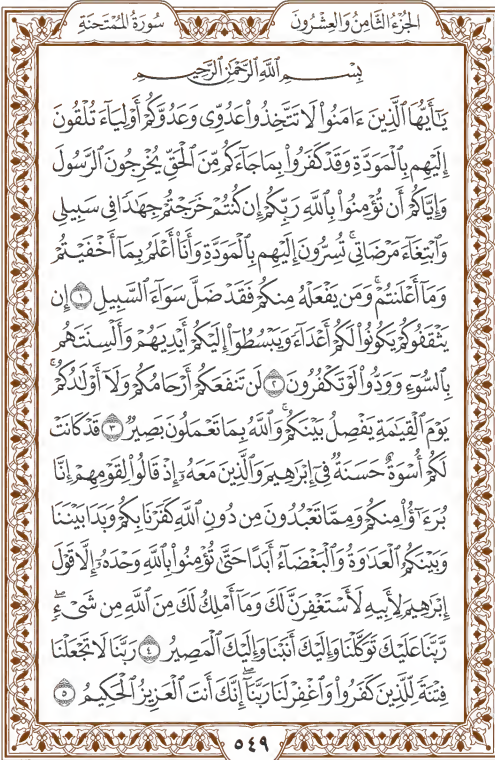 الجزء الثامن والعشرون
سورة الممتحنة
بِسْمِ ٱللَّهِ ٱلرَّحْمَٰنِ ٱلرَّحِيمِ
يَٰٓأَيُّهَا ٱلَّذِينَ ءَامَنُوا۟ لَا تَتَّخِذُوا۟ عَدُوِّى وَعَدُوَّكُمْ أَوْلِيَآءَ تُلْقُونَ
إِلَيْهِم بِٱلْمَوَدَّةِ وَقَدْ كَفَرُوا۟ بِمَا جَآءَكُم مِّنَ ٱلْحَقِّ يُخْرِجُونَ ٱلرَّسُولَ
وَإِيَّاكُمْ أَن تُؤْمِنُوا۟ بِٱللَّهِ رَبِّكُمْ إِن كُنتُمْ خَرَجْتُمْ جِهَٰدًا فِى سَبِيلِى
وَٱبْتِغَآءَ مَرْضَاتِى تُسِرُّونَ إِلَيْهِم بِٱلْمَوَدَّةِ وَأَنَا۠ أَعْلَمُ بِمَآ أَخْفَيْتُمْ
وَمَآ أَعْلَنتُمْ وَمَن يَفْعَلْهُ مِنكُمْ فَقَدْ ضَلَّ سَوَآءَ ٱلسَّبِيلِ ١ إِن
يَثْقَفُوكُمْ يَكُونُوا۟ لَكُمْ أَعْدَآءً وَيَبْسُطُوٓا۟ إِلَيْكُمْ أَيْدِيَهُمْ وَأَلْسِنَتَهُم
بِٱلسُّوٓءِ وَوَدُّوا۟ لَوْ تَكْفُرُونَ ٢ لَن تَنفَعَكُمْ أَرْحَامُكُمْ وَلَآ أَوْلَٰدُكُمْ
يَوْمَ ٱلْقِيَٰمَةِ يَفْصِلُ بَيْنَكُمْ وَٱللَّهُ بِمَا تَعْمَلُونَ بَصِيرٌ ٣ قَدْ كَانَتْ
لَكُمْ أُسْوَةٌ حَسَنَةٌ فِىٓ إِبْرَٰهِيمَ وَٱلَّذِينَ مَعَهُۥٓ إِذْ قَالُوا۟ لِقَوْمِهِمْ إِنَّا
بُرَءَٰٓؤُا۟ مِنكُمْ وَمِمَّا تَعْبُدُونَ مِن دُونِ ٱللَّهِ كَفَرْنَا بِكُمْ وَبَدَا بَيْنَنَا
وَبَيْنَكُمُ ٱلْعَدَٰوَةُ وَٱلْبَغْضَآءُ أَبَدًا حَتَّىٰ تُؤْمِنُوا۟ بِٱللَّهِ وَحْدَهُۥٓ إِلَّا قَوْلَ
إِبْرَٰهِيمَ لِأَبِيهِ لَأَسْتَغْفِرَنَّ لَكَ وَمَآ أَمْلِكُ لَكَ مِنَ ٱللَّهِ مِن شَىْءٍ ۖ
رَّبَّنَا عَلَيْكَ تَوَكَّلْنَا وَإِلَيْكَ أَنَبْنَا وَإِلَيْكَ ٱلْمَصِيرُ ٤ رَبَّنَا لَا تَجْعَلْنَا
فِتْنَةً لِّلَّذِينَ كَفَرُوا۟ وَٱغْفِرْ لَنَا رَبَّنَآ ۖ إِنَّكَ أَنتَ ٱلْعَزِيزُ ٱلْحَكِيمُ ٥
٥٤٩